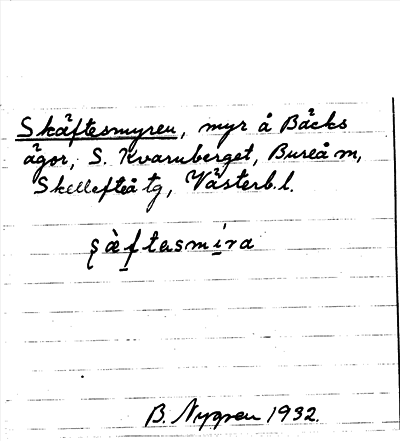 Skäftesmyren, myr å Bäcks
ägor, S. Kvarnberget, Bureå m,
Skellefteå tg, Västerb.l.
şä̀f̱tasmi̱ra
B. Nygren 1932.